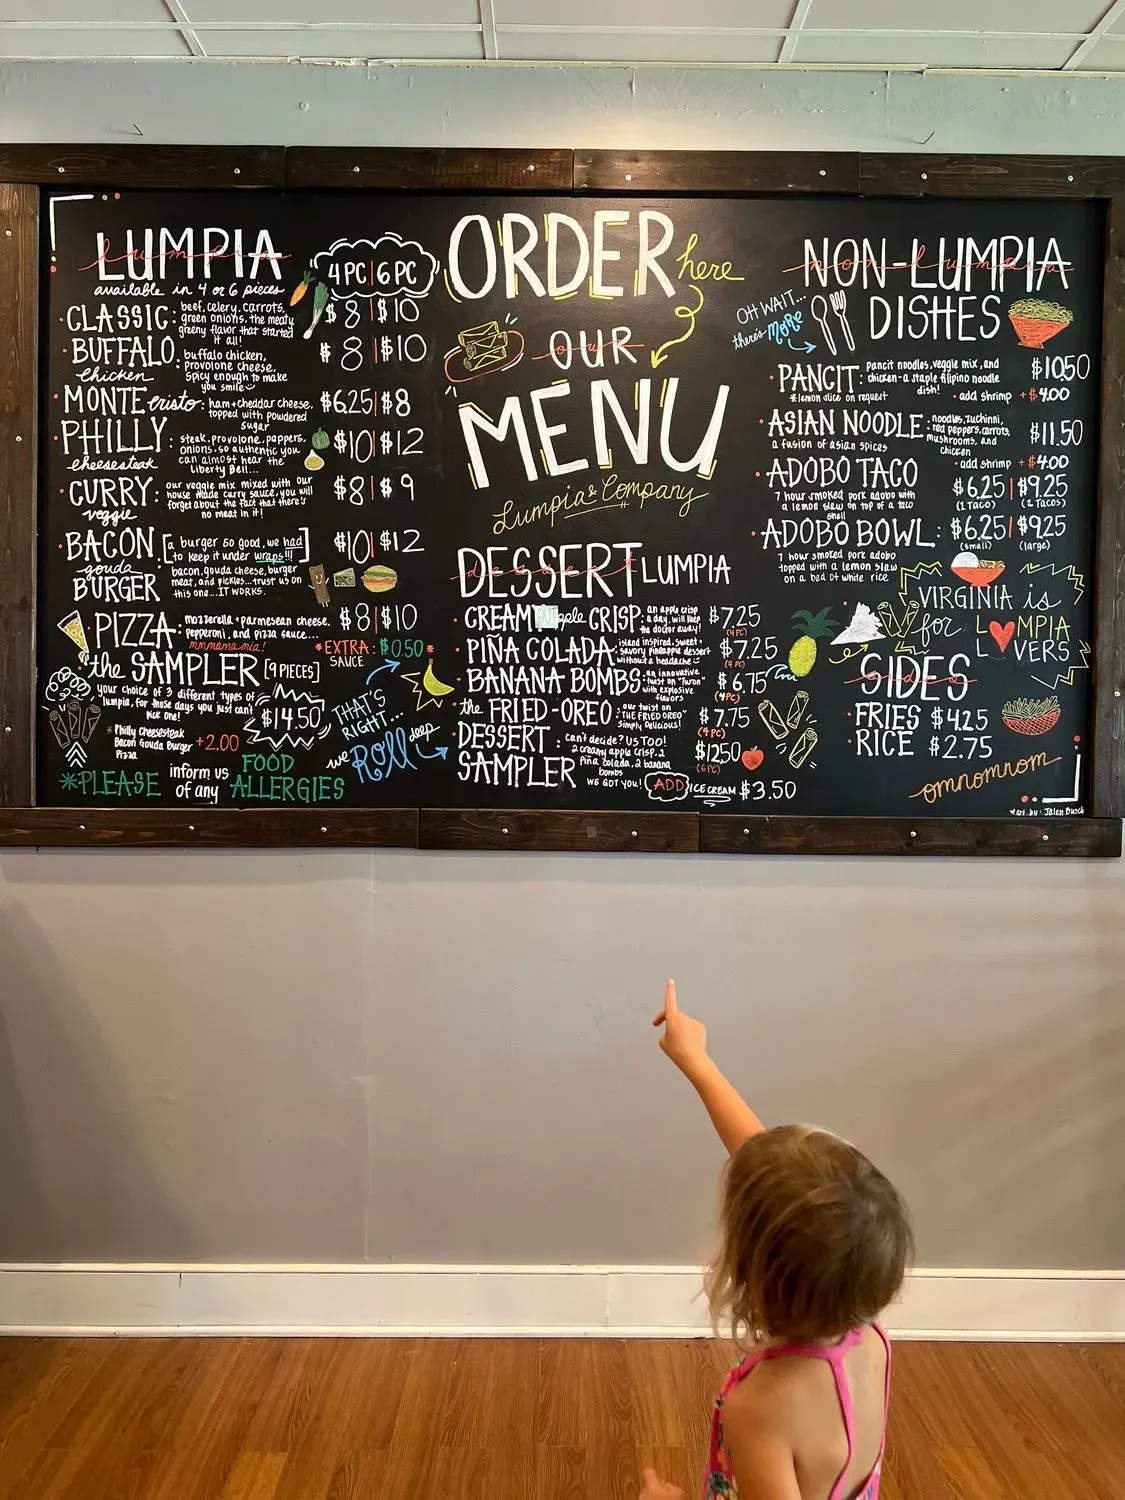 LUMPIA
available in 4 or 6 pieces
4 PC | 6 PC
CLASSIC: beef, celery, carrots,
green onions, the meaty
greeny flavor that started
it all!
$8 | $10
BUFFALO
chicken
: buffalo chicken,
provolone cheese,
spicy enough to make
you smile
$8 | $10
MONTE cristo: ham + cheddar cheese,
topped with powdered
sugar
$6.25 | $8
PHILLY
cheesesteak
: steak, provolone, peppers,
onions. so authentic you
can almost hear the
Liberty Bell...
$10 | $12
CURRY
veggie
: our veggie mix mixed with our
house made curry sauce, you will
forget about the fact that there's
no meat in it!
$8 | $9
BACON
gouda
BURGER
[a burger so good, we had
to keep it under wraps!!!]
bacon, gouda cheese, burger
meat, and pickles... trust us on
this one... IT WORKS.
$10 | $12
PIZZA: mozzerella + parmesean cheese,
pepperoni, and pizza sauce...
mmmama mia!
$8 | $10
*EXTRA: $0.50*
SAUCE
the SAMPLER [9 PIECES]
your choice of 3 different types of
lumpia, for those days you just can't
pick one!
$14.50
*Philly Cheesesteak
Bacon Gouda Burger
Pizza
+2.00
*PLEASE inform us
of any
FOOD
ALLERGIES
THAT'S
RIGHT...
we ROLL deep
ORDER here
OUR
MENU
Lumpia & Company
DESSERT LUMPIA
CREAMY apple CRISP: an apple crisp
a day, will keep
the doctor away!
$7.25
(4 PC)
PIÑA COLADA: island inspired, sweet +
savory pineapple dessert
without a headache
$7.25
(4 PC)
BANANA BOMBS: an innovative
twist on "Turon"
with explosive
flavors
$6.75
(4 PC)
the FRIED-OREO: our twist on
"THE FRIED OREO"
Simply Delicious!
$7.75
(4 PC)
DESSERT
SAMPLER
: can't decide? US TOO!
2 creamy apple crisp, 2
Piña colada, 2 banana
bombs
WE GOT YOU!
$12.50
(6 PC)
ADD ICE CREAM $3.50
NON-LUMPIA
DISHES
OH WAIT...
there's MORE
PANCIT: pancit noodles, veggie mix, and
chicken - a staple filipino noodle
dish!
*lemon slice on request
$10.50
• add shrimp + $4.00
ASIAN NOODLE: noodles, zucchini,
red peppers, carrots,
mushrooms, and
chicken
a fusion of asian spices
$11.50
• add shrimp + $4.00
ADOBO TACO
7 hour smoked pork adobo with
a lemon slaw on top of a taco
shell
$6.25 | $9.25
(1 TACO) (2 TACOS)
ADOBO BOWL:
7 hour smoked pork adobo
topped with a lemon slaw
on a bed of white rice
$6.25 | $9.25
(small) (large)
VIRGINIA is
for LUMPIA
LOVERS
SIDES
FRIES $4.25
RICE $2.75
omnomnom
art by: Jalen Busch